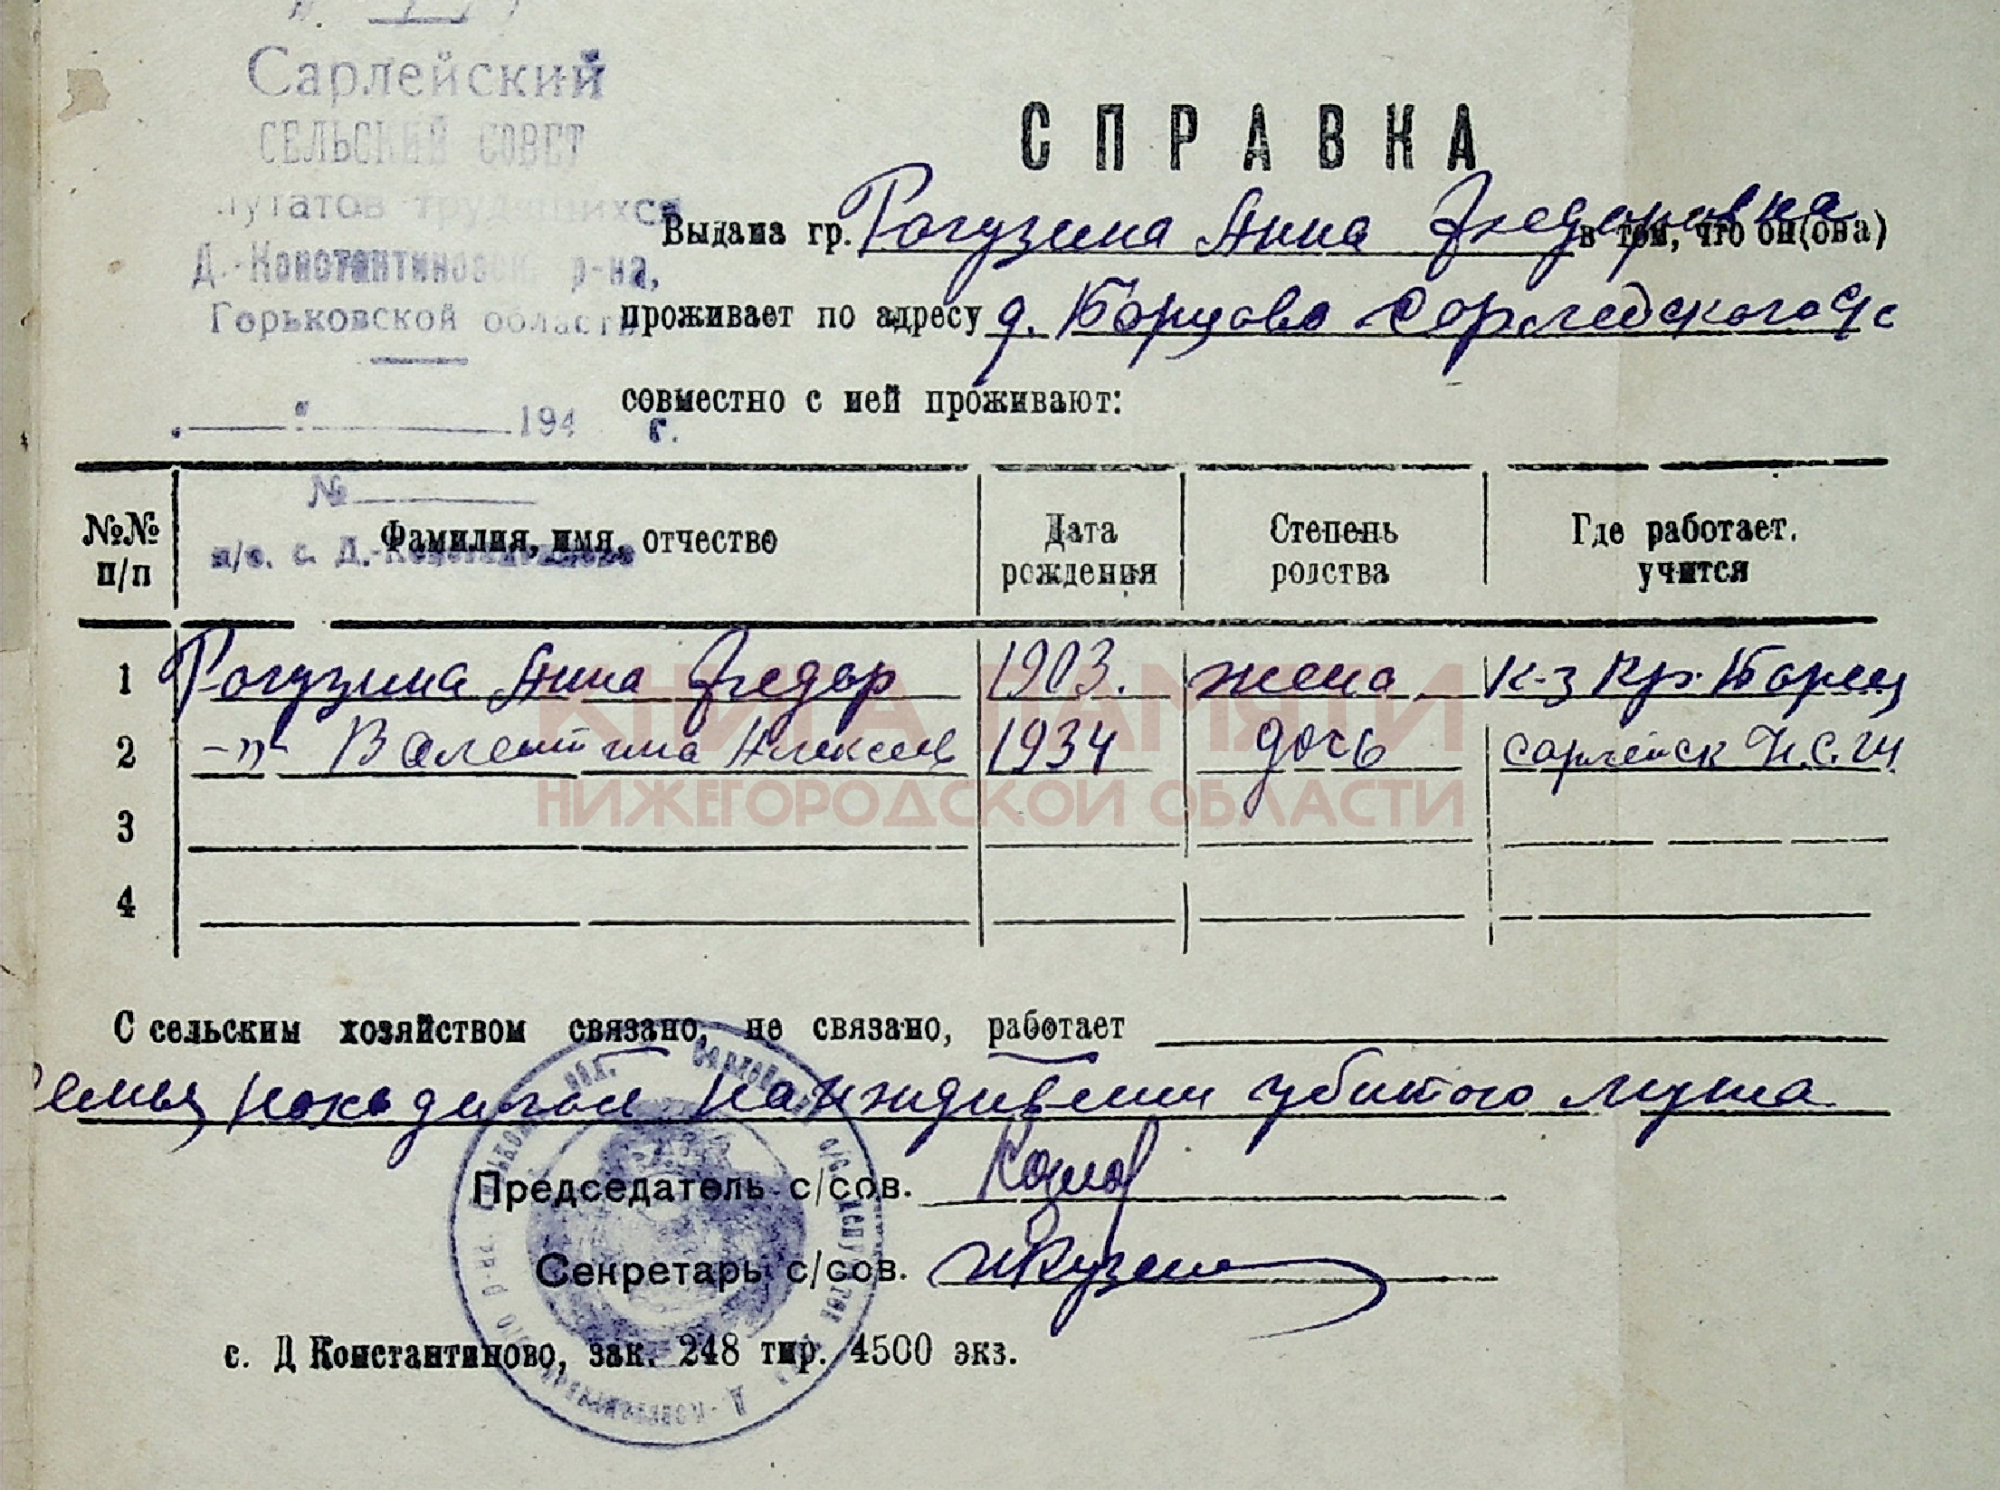 Сарлейский
СЕЛЬСКИЙ СОВЕТ
путатов трудящихся
Д.-Константиновск. р-на,
Горьковской области
194 г.
№
п/о. с. Д.-Константиново
СПРАВКА
Выдана гр. Рогузина Анна Федоровна в том, что он(она)
проживает по адресу д. Борцово Сарлейского с/с
совместно с ней проживают:
№№ п/п Фамилия, имя, отчество Дата рождения Степень родства Где работает. учится
1 Рогузина Анна Федор 1903. жена к-з Кр. Борец
2 -"- Валентина Алексеев 1934 дочь Сарлейск Н.С.Ш
3
4
С сельским хозяйством связано, не связано, работает
Семья находилась на иждивении убитого мужа
Председатель с/сов. Козлов
Секретарь с/сов.
с. Д Константиново, зак. 248 тир. 4500 экз.
КНИГА ПАМЯТИ
НИЖЕГОРОДСКОЙ ОБЛАСТИ